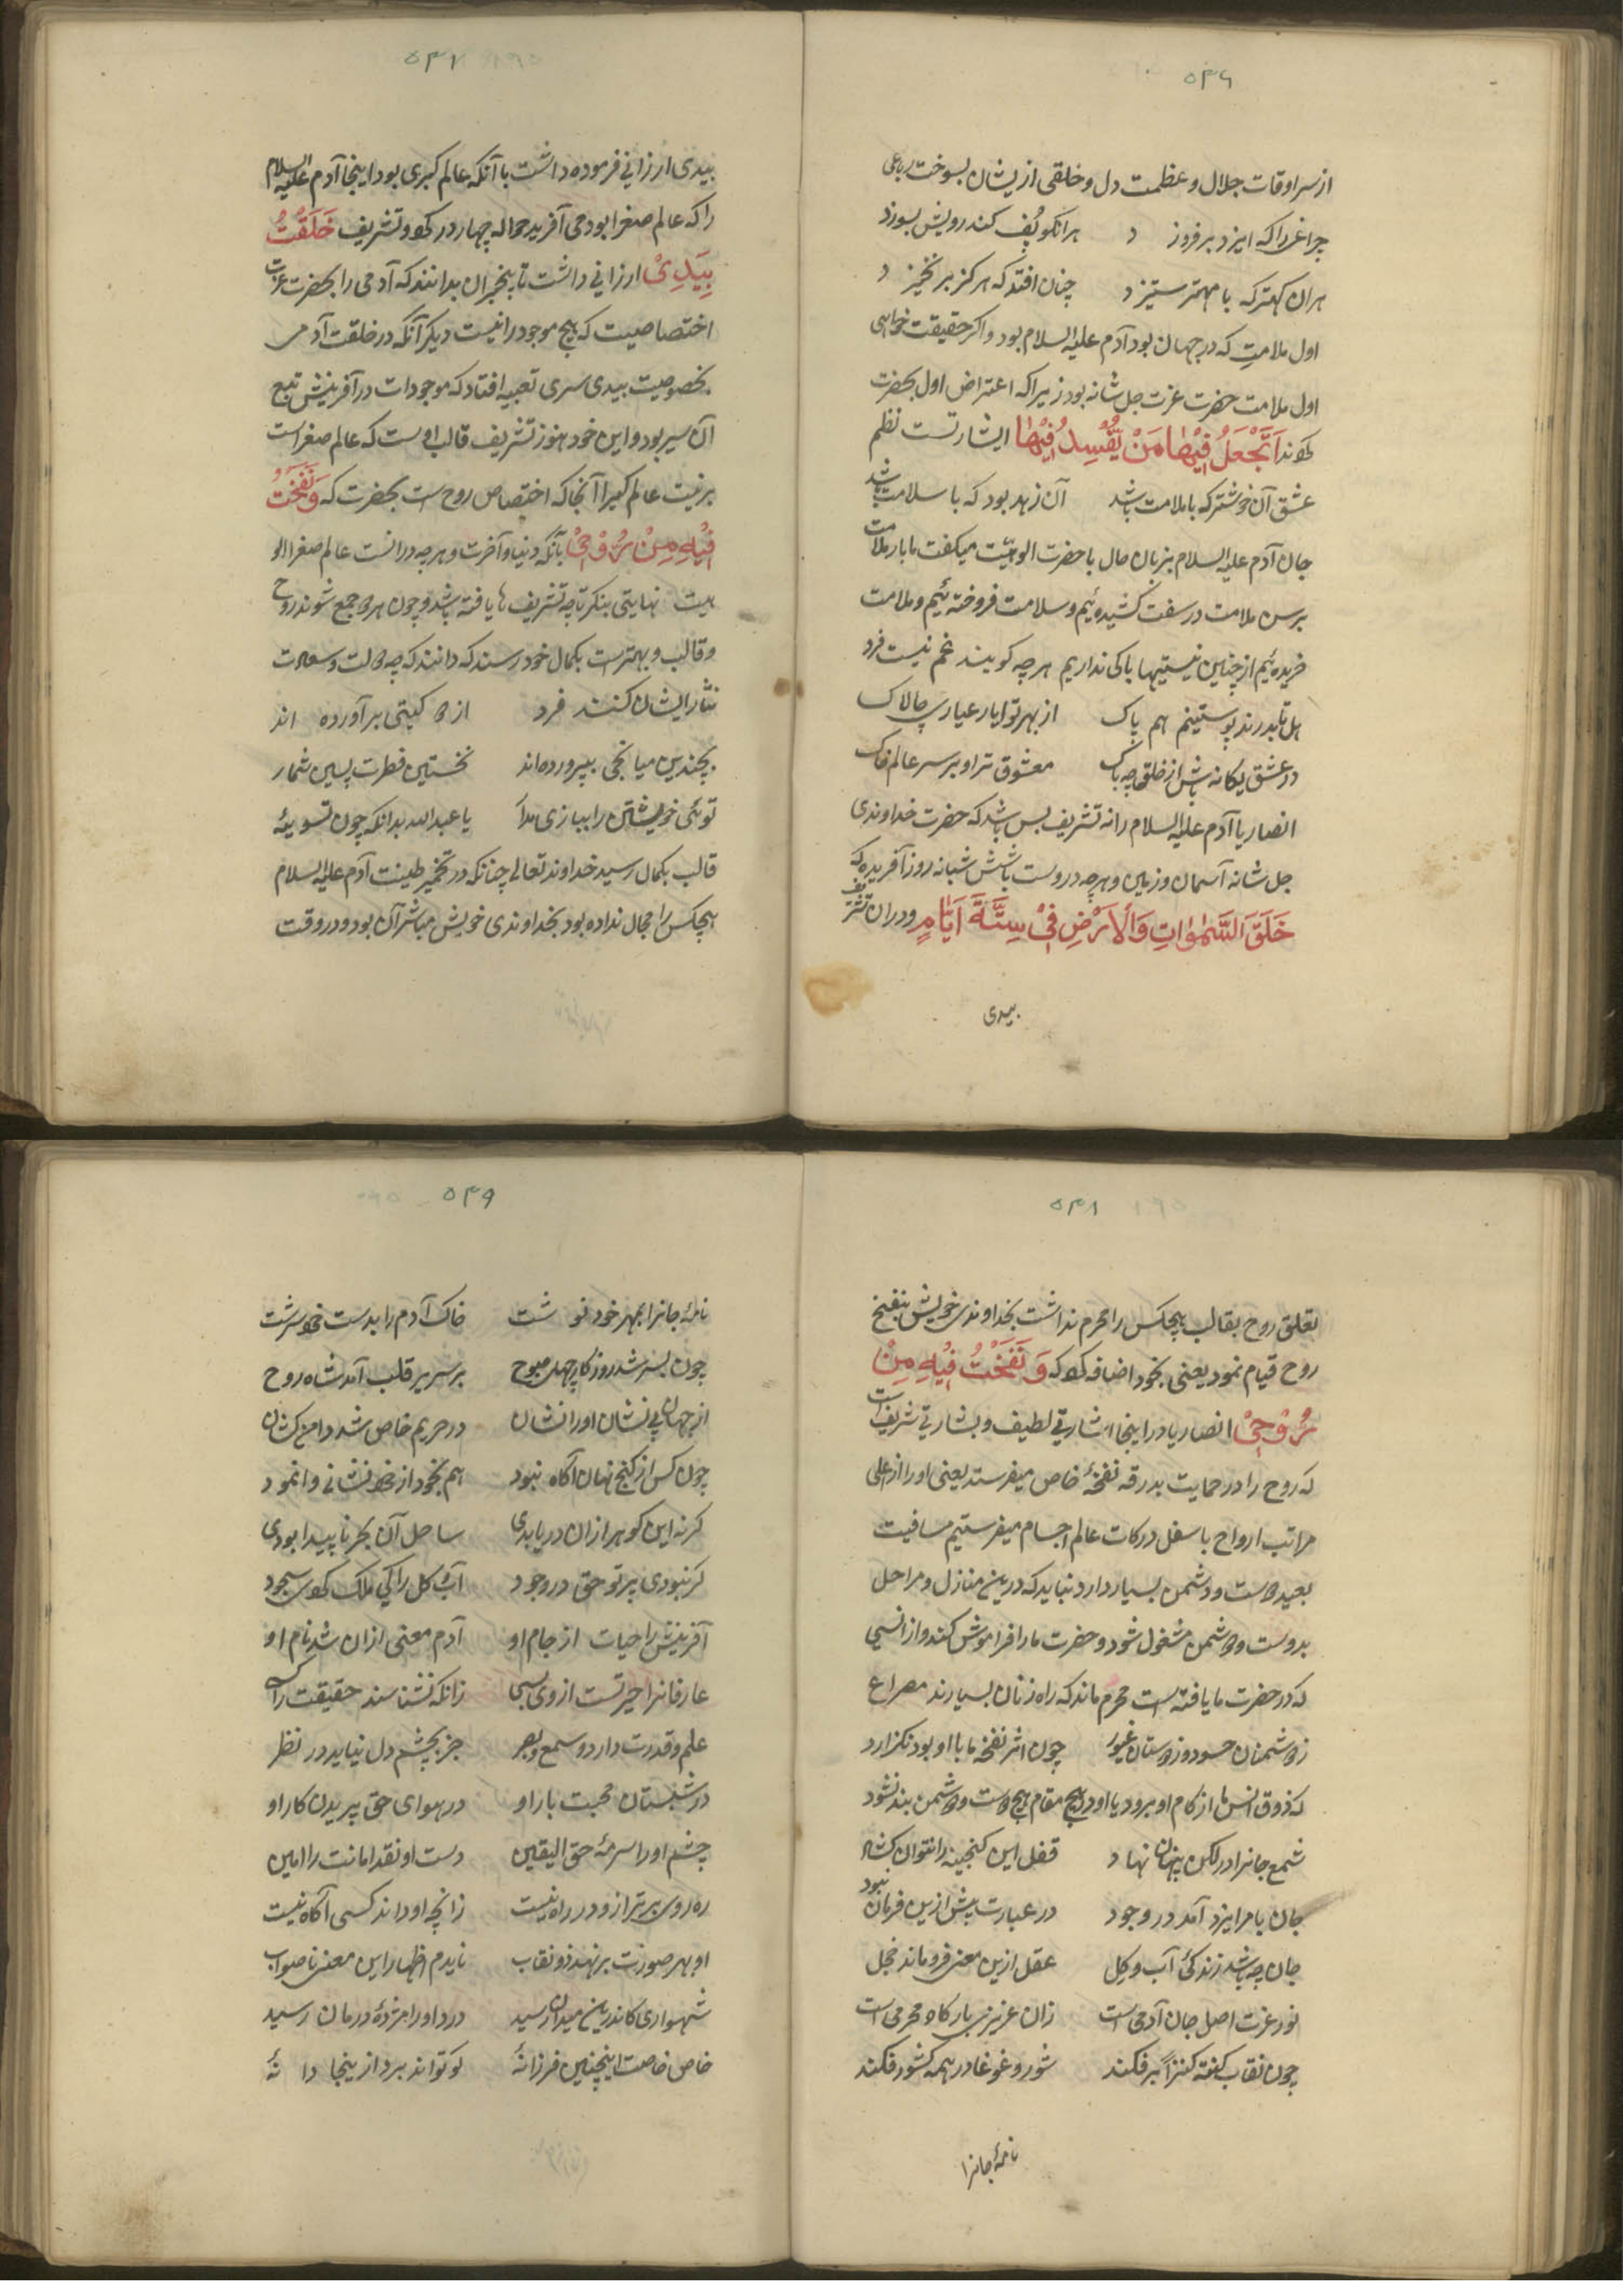 ۵۴۶
از سراوقات جلال و عظمت دل و خلقی ازیشان بسوخت رباعی
چراغی را که ایزد برفروزد هرانکو پُف کند رویش بسوزد
هران کهتر که با مهتر ستیزد چنان افتد که هرکز برنخیزد
اول ملامتِ که در جهان بود آدم علیه السلام بود و اکر حقیقت خواهی
اول ملامت حضرت عزت جل شانه بود زیرا که اعتراض اول بحضرت
کردند اَتَجْعَلُ فِیْهٰا مَنْ یُّفْسِدُ فِیْهٰا ایشارتست نظم
عشق آن خوشتر که با ملامت باشد آن زهد بود که با سلامت باشد
جان آدم علیه السلام بزبان حال با حضرت الوهیّت میکفت ما بار ملامت
برسن ملامت در سفت کشیده ئیم و سلامت فروخته ئیم و ملامت
خریده ئیم از چنین نیستیها باکی نداریم هرچه کویند غم نیست فرد
هل تا بدرند پوستینم هم پاک از بهر تو ای یار عیار چالاک
در عشق یکانه باش از خلق چه باک معشوق ترا و بر سر عالم خاک
انصاریا آدم علیه السلام را نه تشریف بس باشد که حضرت خداوندی
جل شانه آسمان و زمین و هرچه دروست بشش شبانه روز آفریده که
خَلَقَ السَّمٰوٰاتِ وَالْاَرْضِ فِیْ سِتَّةَ اَیّٰامٍ و دران تشریف
بیدی
۵۴۷
بیدی ارزانی فرموده داشت با آنکه عالم کبری بود اینجا آدم علیه السلام
را که عالم صغرا بود می آفرید حواله چهار در کرد و تشریف خَلَقْتُ
بِیَدِیْ ارزانی داشت تا بیخبران بدانند که آدمی را بحضرت عزت
اختصاصیت که هیچ موجود را نیست دیکر آنکه در خلقت آدم
بخصوصیت بیدی سری تعبیه افتاد که موجودات در آفرینش تبع
آن سیر بود و این خود هنوز تشریف قالب اوست که عالم صغراست
برنیت عالم کبیرا آنجا که اختصاص روح است بحضرت که وَنَفَخْتُ
فِیْهِ مِنْ رُوْحِیْ بآنکه دنیا و آخرت و هرچه درانست عالم صغرا الو
هیت نهایتی بنکر تا چه تشریف ها یافته باشد و چون هر دو جمع شوند روح
و قالب و بهترست بکمال خود رسند که دانند که چه دولت و سعادت
نثار ایشان کنند فرد از دو کیتی برآورده اند
بچندین میانجی بپرورده اند نخستین فطرت پسین شمار
توئی خویشتن را ببازی مدار یا عبدالله بدانکه چون تسویهٔ
قالب بکمال رسید خداوند تعالی چنانکه در تخمیر طینت آدم علیه السلام
هیچکس را مجال نداده بود بخداوندی خویش مباشر آن بود و در وقت
۵۴۸
تعلق روح بقالب هیچکس را محرم نداشت بخداوندی خویش بنفخ
روح قیام نمود یعنی بخود اضافه کرد که وَ نَفَخْتُ فِیْهِ مِنْ
رُوْحِیْ انصاریا در اینجا اشارتی لطیف و بشارتی شریف است
که روح را در حمایت بدرقه نفخهٔ خاص میفرستد یعنی او را از اعلی
مراتب ارواح باسفل درکات عالم اجسام میفرستیم مسافت
بعید است و دشمن بسیار دارد نباید که درین منازل و مراحل
بدوست و دشمن مشغول شود و حضرت ما را فراموش کند و از انسی
که در حضرت ما یافته است محروم ماند که راه زنان بسیارند مصراع
ز دشمنان حسود و ز دوستان غیور چون اثر نفخه ما با او بود نکزارد
که ذوق انس ما از کام او برود یا او در هیچ مقام هیچ دوست و دشمن بند نشود
شمع جانرا در لکن پنهان نهاد قفل این کنجینه را نتوان کشاد
جان بامر ایزد آمد در وجود در عبارت پیش ازین فرمان نبود
جان چه باشد زندکیٔ آب و کل عقل ازین معنی فروماند خجل
نور عزت اصل جان آدمی است زان عزیز بارکاه محرمی است
چون نقاب کفتهٔ کنزاً برفکند شور و غوغا در همه کشور فکند
نامهٔ جانرا
۵۴۹
نامهٔ جانرا بمهر خود نوشت خاک آدم را بدست خود سرشت
چون بسر شد روزکار چهل صبوح بر سریر قلب آمد شاه روح
از جهان بی نشان او را نشان در حریم خاص شد دامن کشان
چون کس از کنج نهان آکاه نبود هم بخود از خود نشانی وا نمود
کر نه این کوهر ازان دریا بدی ساحل آن بحر ناپیدا بودی
کر نبودی پرتو حق در وجود آب و کل را کی ملک کردی سجود
آفرینش را حیات از جام او آدم معنی ازان شد نام او
عارفانرا حیرتست از وی بسی زانکه نشناسند حقیقت را کسی
علم و قدرت دارد و سمع و بصر جز بچشم دل نیاید در نظر
در شبستان محبت بار او در هوای حق پریدن کار او
چشم او را سرمهٔ حق الیقین دست او نقد امانت را امین
ره روی برتر ازو در راه نیست زانچه او داند کسی آکاه نیست
او بهر صورت برنهند ذو نقاب نایدم اظهار این معنی ناصواب
شهسواری کاندرین میدان رسید درد او را مژدهٔ درمان رسید
خاص خاصست اینچنین فرزانهٔ کو تواند برد ازینجا دانهٔ